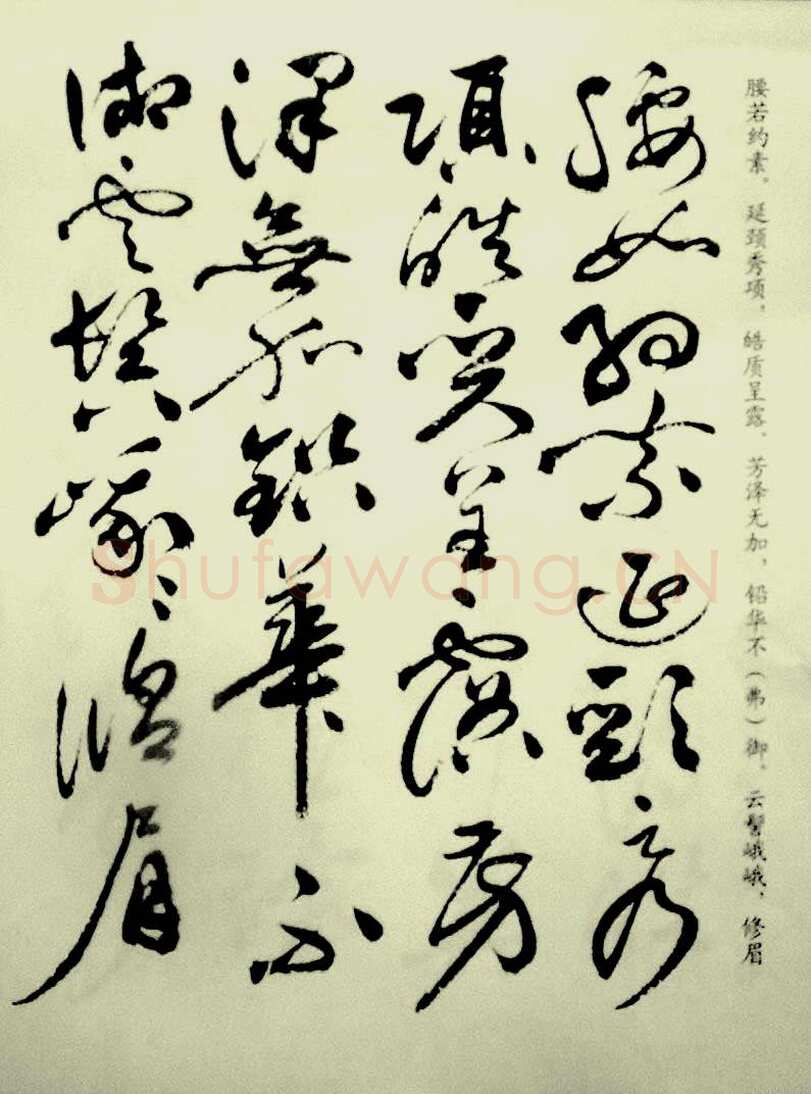 腰若约素。延颈秀项，皓质呈露。芳泽无加，铅华不（弗）御。云髻峨峨，修眉
腰如約素延頸秀
項皓質呈露芳
澤無加鉛華不
御雲髻峨〻脩眉
Shufawang.CN